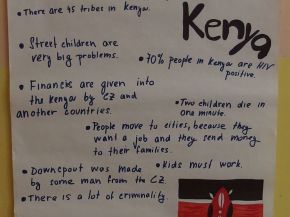 • There are 45 tribes in Kenya.
Kenya
• Street children are
very big problems.
• 70% people in Kenya are HIV
positive.
• Financis are given into
the Kenya by CZ and
another countries.
• Two children die in
one minute.
• People move to cities, because they
want a job and they send money
to their families.
• Kids must work.
• Downspout was made
by some man from the CZ.
• There is a lot of criminality.